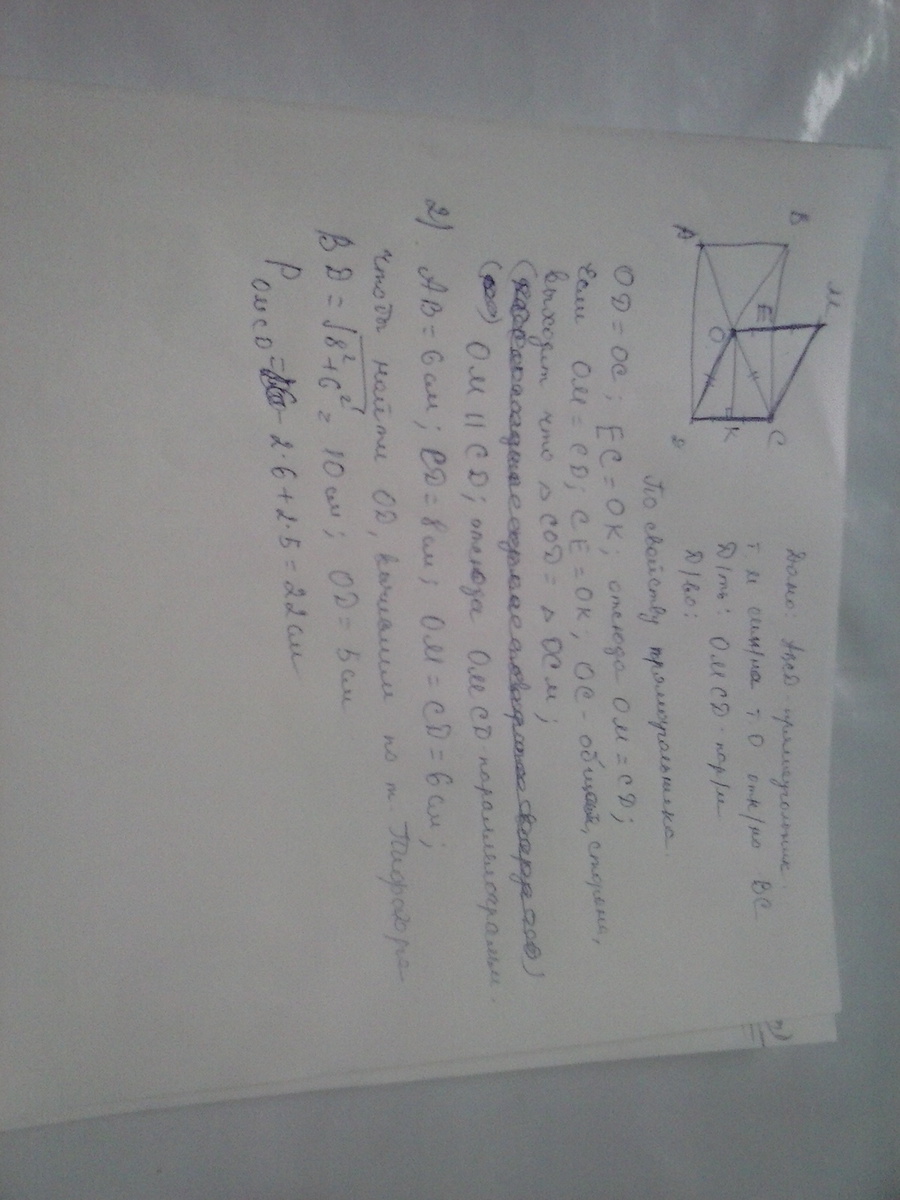 Дано: ABCD прямоугольник.
т M сим/на т O отн/но BC
Д/ть: OMCD - пар/м
Д/во:
M
B
E
C
A
O
K
По свойству прямоугольника.
OD = OC; EC = OK; отсюда OM = CD;
Если OM = CD; CE = OK; OC - общая, сторона,
выходит что △ COD = △ OCM;
OM || CD; отсюда OMCD параллелограмм.
2) AB = 6 см; BD = 8 см; OM = CD = 6 см;
чтобы найти OD, вычислим по т. Пифагора
BD = √8²+6² = 10 см; OD = 5 см
P OMCD = 2·6+2·5 = 22 см